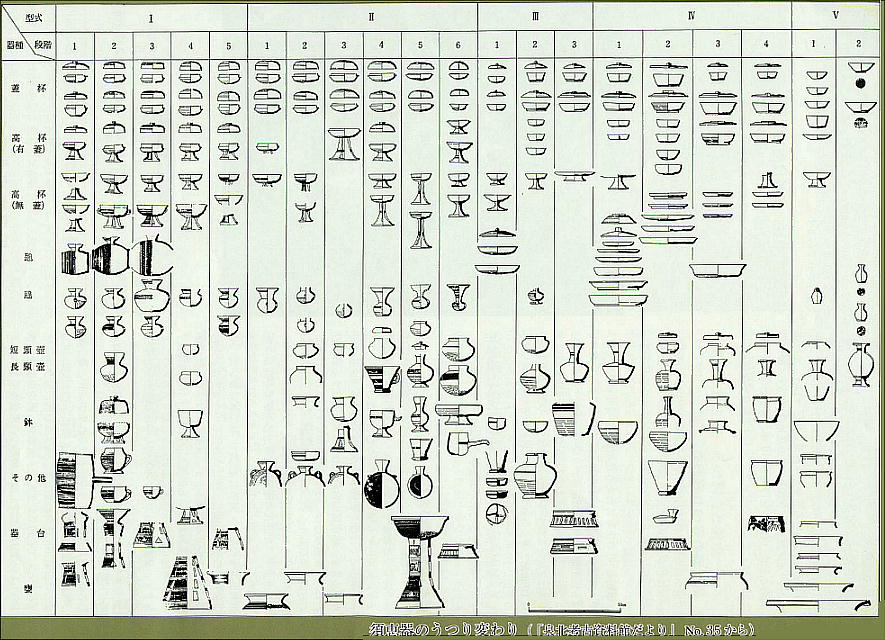 型式 I II III IV V
器種 段階 1 2 3 4 5 1 2 3 4 5 6 1 2 3 1 2 3 4 1 2
蓋杯
高杯
(有蓋)
高杯
(無蓋)
短頸壺
長頸壺
鉢
その他
器台
甕
須恵器のうつり変わり (『泉北考古資料館だより』 No.35から)